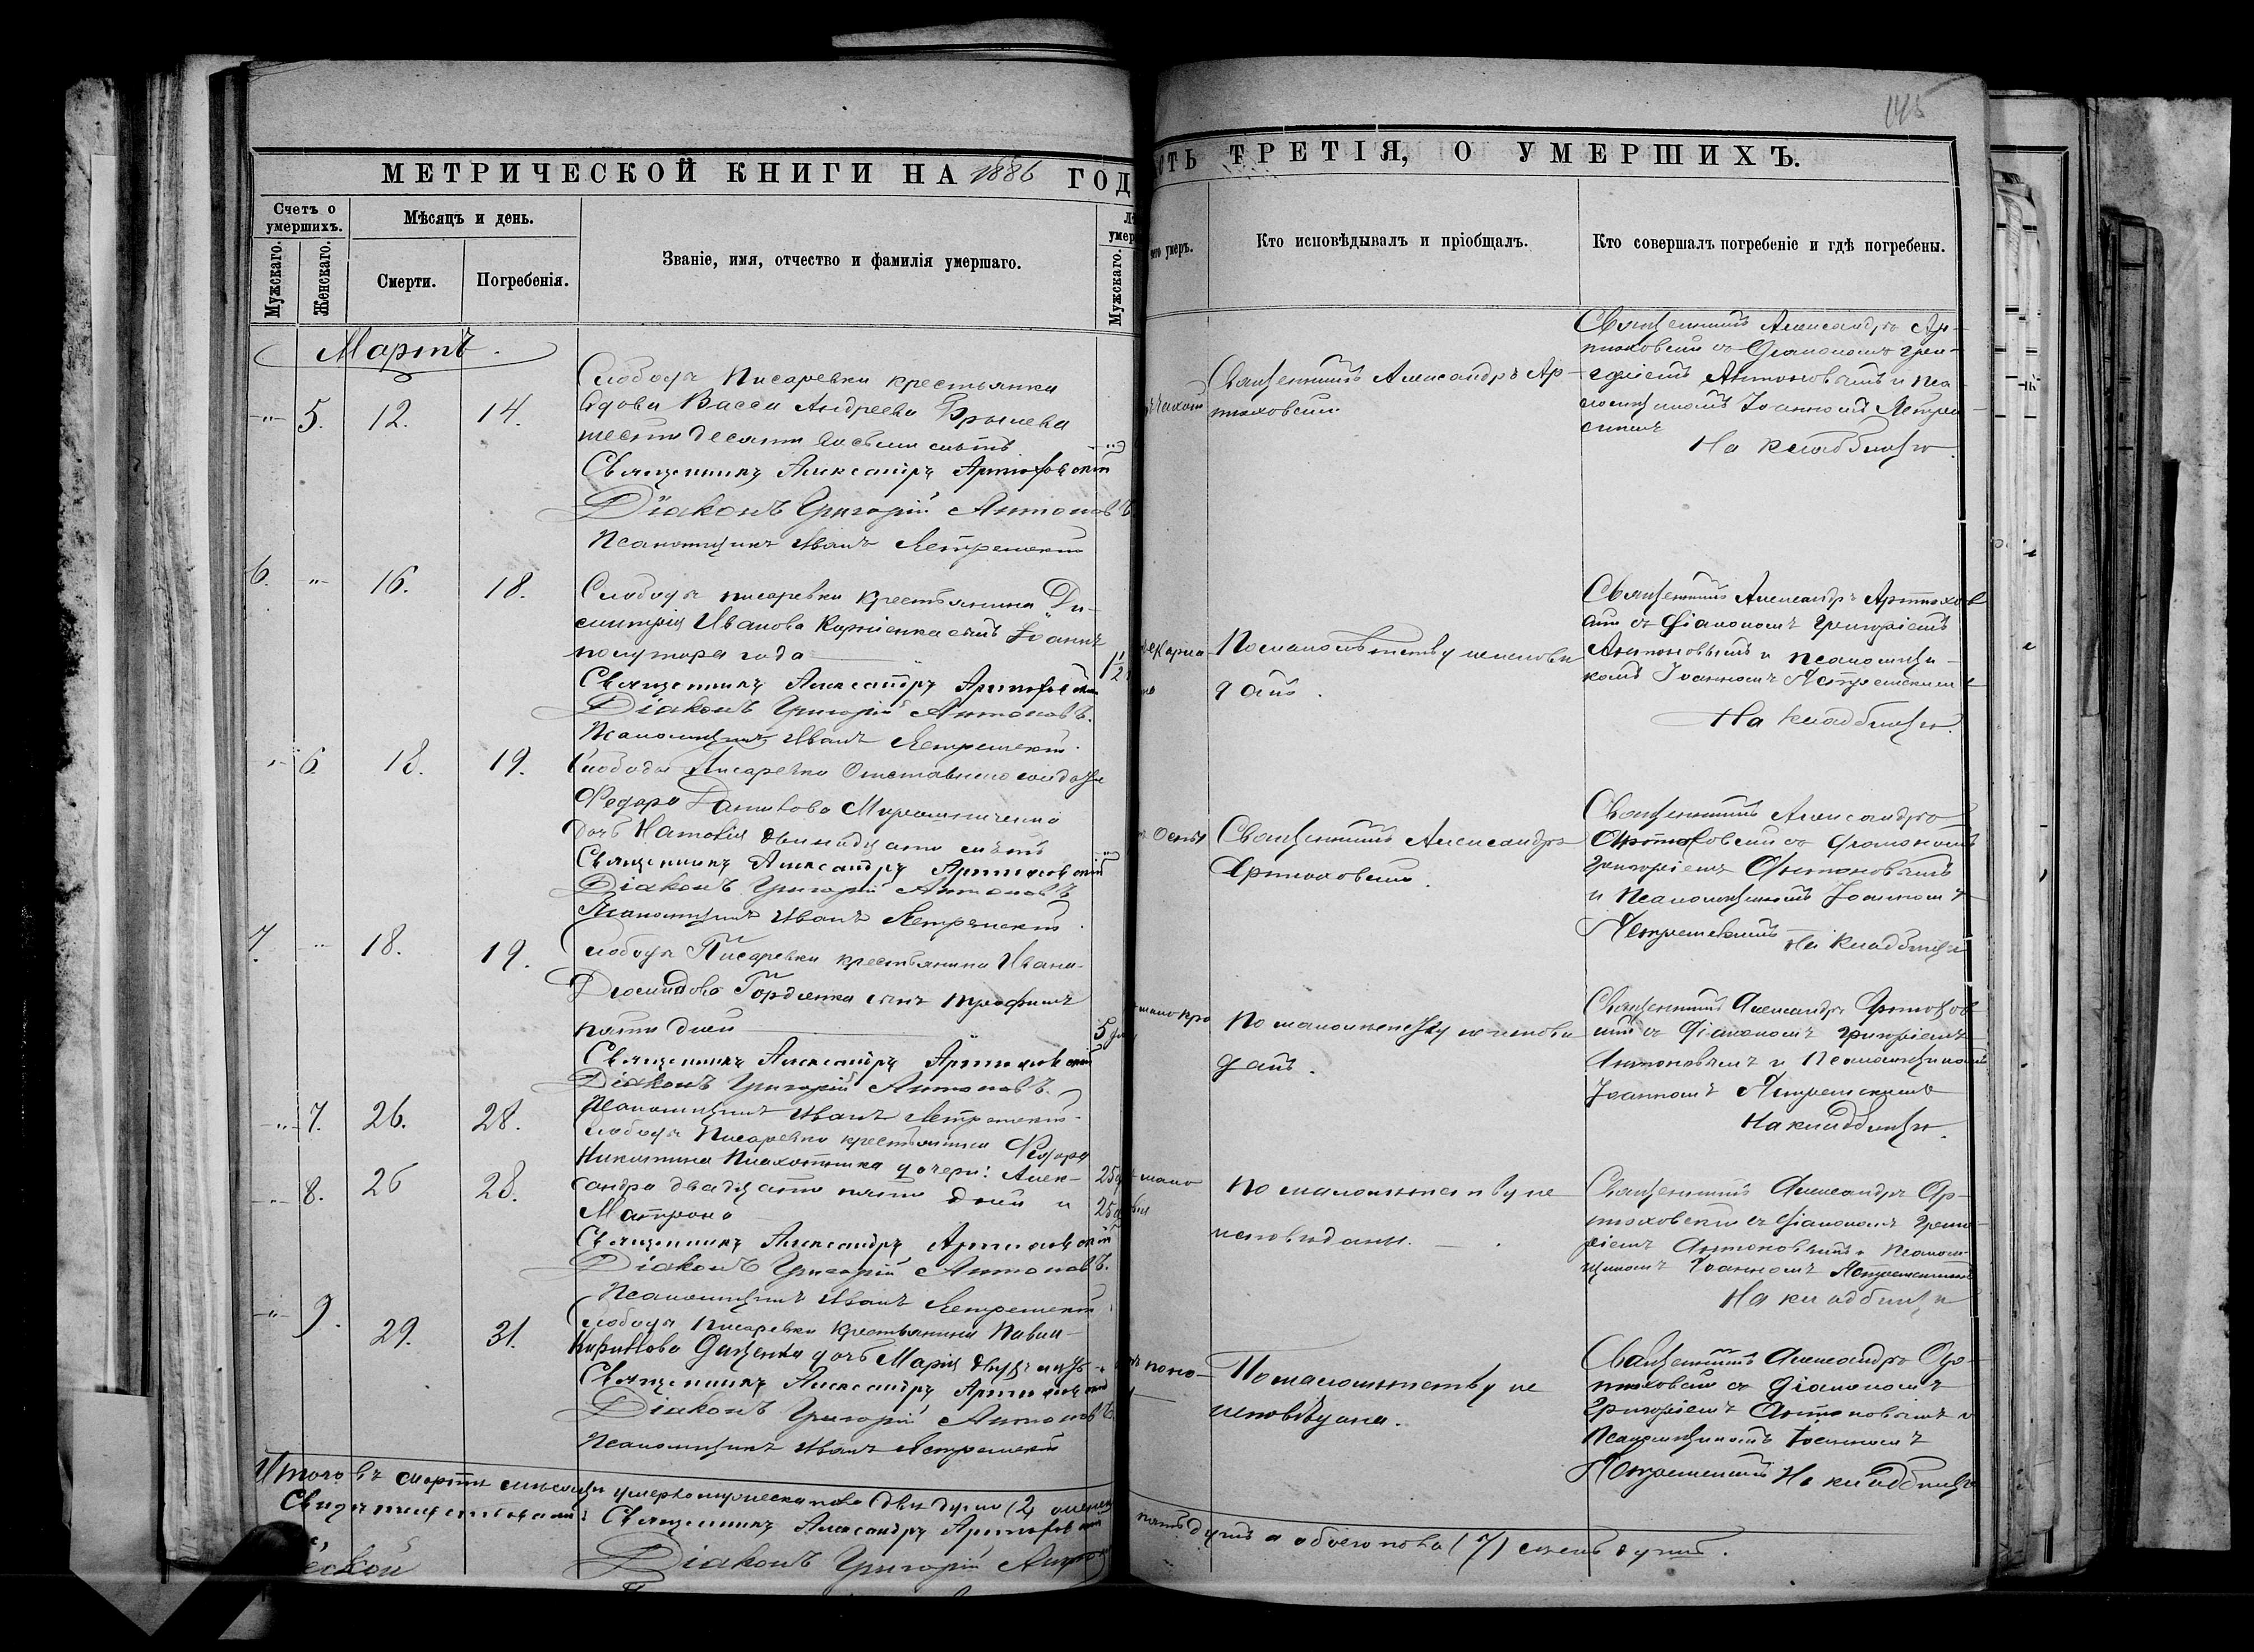 145
МЕТРИЧЕСКОЙ КНИГИ НА 1886 ГОД
СТЬ ТРЕТІЯ, О УМЕРШИХЪ.
Счетъ о умершихъ.
Мужскаго.
Женскаго.
Мѣсяцъ и день.
Смерти.
Погребенія.
Званіе, имя, отчество и фамилія умершаго.
Мужскаго.
чего умеръ.
Кто исповѣдывалъ и пріобщалъ.
Кто совершалъ погребеніе и гдѣ погребены.
Мартъ.
-"- 5. 12. 14.
Слободы Писаревки крестьянка
вдова Васса Андреева
шестидесяти восьми лѣтъ
Священникъ Александръ Артюховскій
Діаконъ Григорій Антоновъ
Псаломщикъ Иванъ Ястремскій
Священникъ Александръ Ар-
тюховскій
Священникъ Александръ Ар-
тюховскій съ Діакономъ Гри-
горіемъ Антоновымъ и Пса-
ломщикомъ Іоанномъ Ястрем-
скимъ
На кладбищѣ.
6. -"- 16. 18.
Слободы Писаревки крестьянина Ди-
митрія Иванова Корніенка сынъ Іоаннъ
полутора года
1 1/2
Священникъ Александръ Артюховскій
Діаконъ Григорій Антоновъ.
Псаломщикъ Иванъ Ястремскій.
По малолѣтству неисповѣ
данъ.
Священникъ Александръ Артюхов
скій съ Діакономъ Григоріемъ
Антоновымъ и Псаломщи-
комъ Іоанномъ Ястремскимъ
На кладбищѣ.
-"- 6. 18. 19.
Слободы Писаревки Отставнаго солдата
Федора Данилова Мирошниченко
дочь Наталія двенадцати лѣтъ
Священникъ Александръ Артюховскій
Діаконъ Григорій Антоновъ
Псаломщикъ Иванъ Ястремскій.
Оспы
Священникъ Александръ
Артюховскій.
Священникъ Александръ
Артюховскій съ Діакономъ
Григоріемъ Антоновымъ
и Псаломщикомъ Іоанномъ
Ястремскимъ
На кладбищѣ
7. -"- 18. 19.
Слободы Писаревки крестьянина Ивана
Гордіенка сынъ Трофимъ
пяти дней
5
Священникъ Александръ Артюховскій
Діаконъ Григорій Антоновъ.
Псаломщикъ Иванъ Ястремскій.
По малолѣтству неисповѣ
данъ.
Священникъ Александръ Артюхов
скій съ Діакономъ Григоріемъ
Антоновымъ и Псаломщикомъ
Іоанномъ Ястремскимъ
На кладбищѣ.
-"- 7. 26. 28.
-"- 8. 26 28.
Слободы Писаревки крестьянина Федора
Никитина Плахотника дочери: Алек-
сандра двадцати пяти дней и
Матрона
25
25
Священникъ Александръ Артюховскій
Діаконъ Григорій Антоновъ.
Псаломщикъ Иванъ Ястремскій
По малолѣтству не
исповѣданы.
Священникъ Александръ Ар-
тюховскій съ Діакономъ Григо-
ріемъ Антоновымъ и Псалом-
щикомъ Іоанномъ Ястремскимъ
На кладбищѣ
-"- 9. 29. 31.
Слободы Писаревки крестьянина Павла
дочь Марія двухъ
Священникъ Александръ Артюховскій
Діаконъ Григорій Антоновъ
Псаломщикъ Иванъ Ястремскій
По малолѣтству не
исповѣдана.
Священникъ Александръ Ар-
тюховскій съ Діакономъ
Григоріемъ Антоновымъ и
Псаломщикомъ Іоанномъ
Ястремскимъ На кладбищѣ
Итого въ мартѣ мѣсяцѣ умерло мужеска пола двѣ души (2)
пять душъ а обоего пола (7) семь душъ.
Свидѣтельствовали: Священникъ Александръ Артюховскій
Діаконъ Григорій Антонов